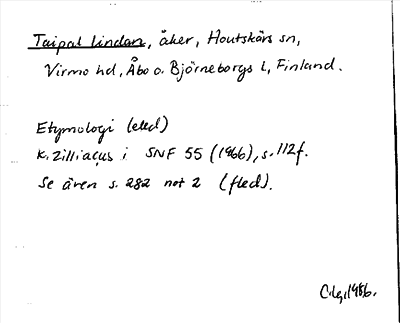 Taipal lindan, åker, Houtskärs sn,
Virmo hd, Åbo o. Björneborgs l, Finland.
Etymologi (eled)
K. Zilliacus i SNF 55 (1966), s. 112f.
Se även s. 282 not 2 (fled).
1986.